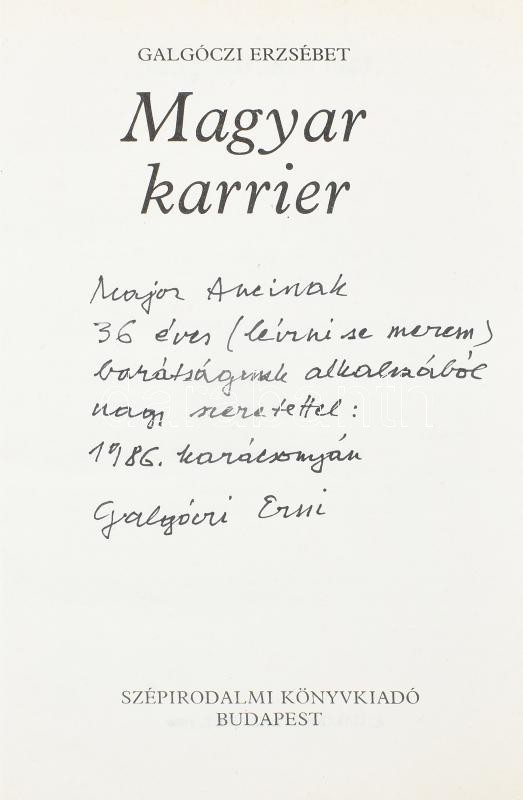 GALGÓCZI ERZSÉBET
Magyar
karrier
Major Ancinak
36 éves (leírni se merem)
barátságunk alkalmából
nagy szeretettel:
1986. karácsonyán
Galgóczi Erzsi
SZÉPIRODALMI KÖNYVKIADÓ
BUDAPEST